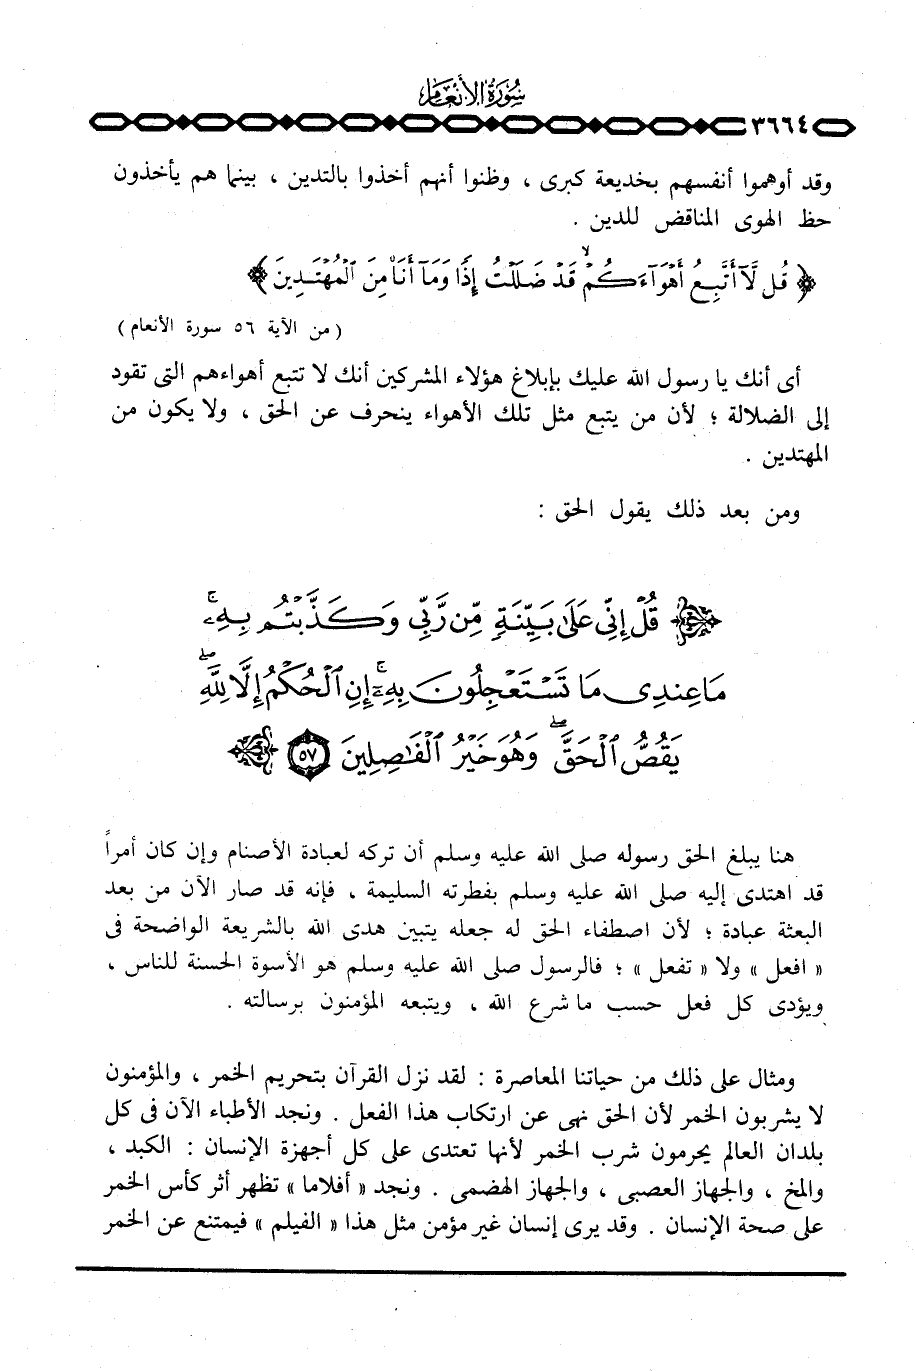 سُورَةُ الأَنْعَامِ
٣٦٦٤
وقد أوهموا أنفسهم بخديعة كبرى ، وظنوا أنهم أخذوا بالتدين ، بينما هم يأخذون
حظ الهوى المناقض للدين .
﴿ قُل لَّآ أَتَّبِعُ أَهْوَآءَكُمْ ۙ قَدْ ضَلَلْتُ إِذًا وَمَآ أَنَا۠ مِنَ ٱلْمُهْتَدِينَ ﴾
( من الآية ٥٦ سورة الأنعام )
أى أنك يا رسول الله عليك بإبلاغ هؤلاء المشركين أنك لا تتبع أهواءهم التى تقود
إلى الضلالة ؛ لأن من يتبع مثل تلك الأهواء ينحرف عن الحق ، ولا يكون من
المهتدين .
ومن بعد ذلك يقول الحق :
﴿ قُلْ إِنِّى عَلَىٰ بَيِّنَةٍ مِّن رَّبِّى وَكَذَّبْتُم بِهِۦ ۚ
مَا عِندِى مَا تَسْتَعْجِلُونَ بِهِۦٓ ۚ إِنِ ٱلْحُكْمُ إِلَّا لِلَّهِ ۖ
يَقُصُّ ٱلْحَقَّ ۖ وَهُوَ خَيْرُ ٱلْفَٰصِلِينَ ٥٧ ﴾
هنا يبلغ الحق رسوله صلى الله عليه وسلم أن تركه لعبادة الأصنام وإن كان أمراً
قد اهتدى إليه صلى الله عليه وسلم بفطرته السليمة ، فإنه قد صار الآن من بعد
البعثة عبادة ؛ لأن اصطفاء الحق له جعله يتبين هدى الله بالشريعة الواضحة فى
« افعل » ولا « تفعل » ؛ فالرسول صلى الله عليه وسلم هو الأسوة الحسنة للناس ،
ويؤدى كل فعل حسب ما شرع الله ، ويتبعه المؤمنون برسالته .
ومثال على ذلك من حياتنا المعاصرة : لقد نزل القرآن بتحريم الخمر ، والمؤمنون
لا يشربون الخمر لأن الحق نهى عن ارتكاب هذا الفعل . ونجد الأطباء الآن فى كل
بلدان العالم يحرمون شرب الخمر لأنها تعتدى على كل أجهزة الإنسان : الكبد ،
والمخ ، والجهاز العصبى ، والجهاز الهضمى . ونجد « أفلاما » تظهر أثر كأس الخمر
على صحة الإنسان . وقد يرى إنسان غير مؤمن مثل هذا « الفيلم » فيمتنع عن الخمر